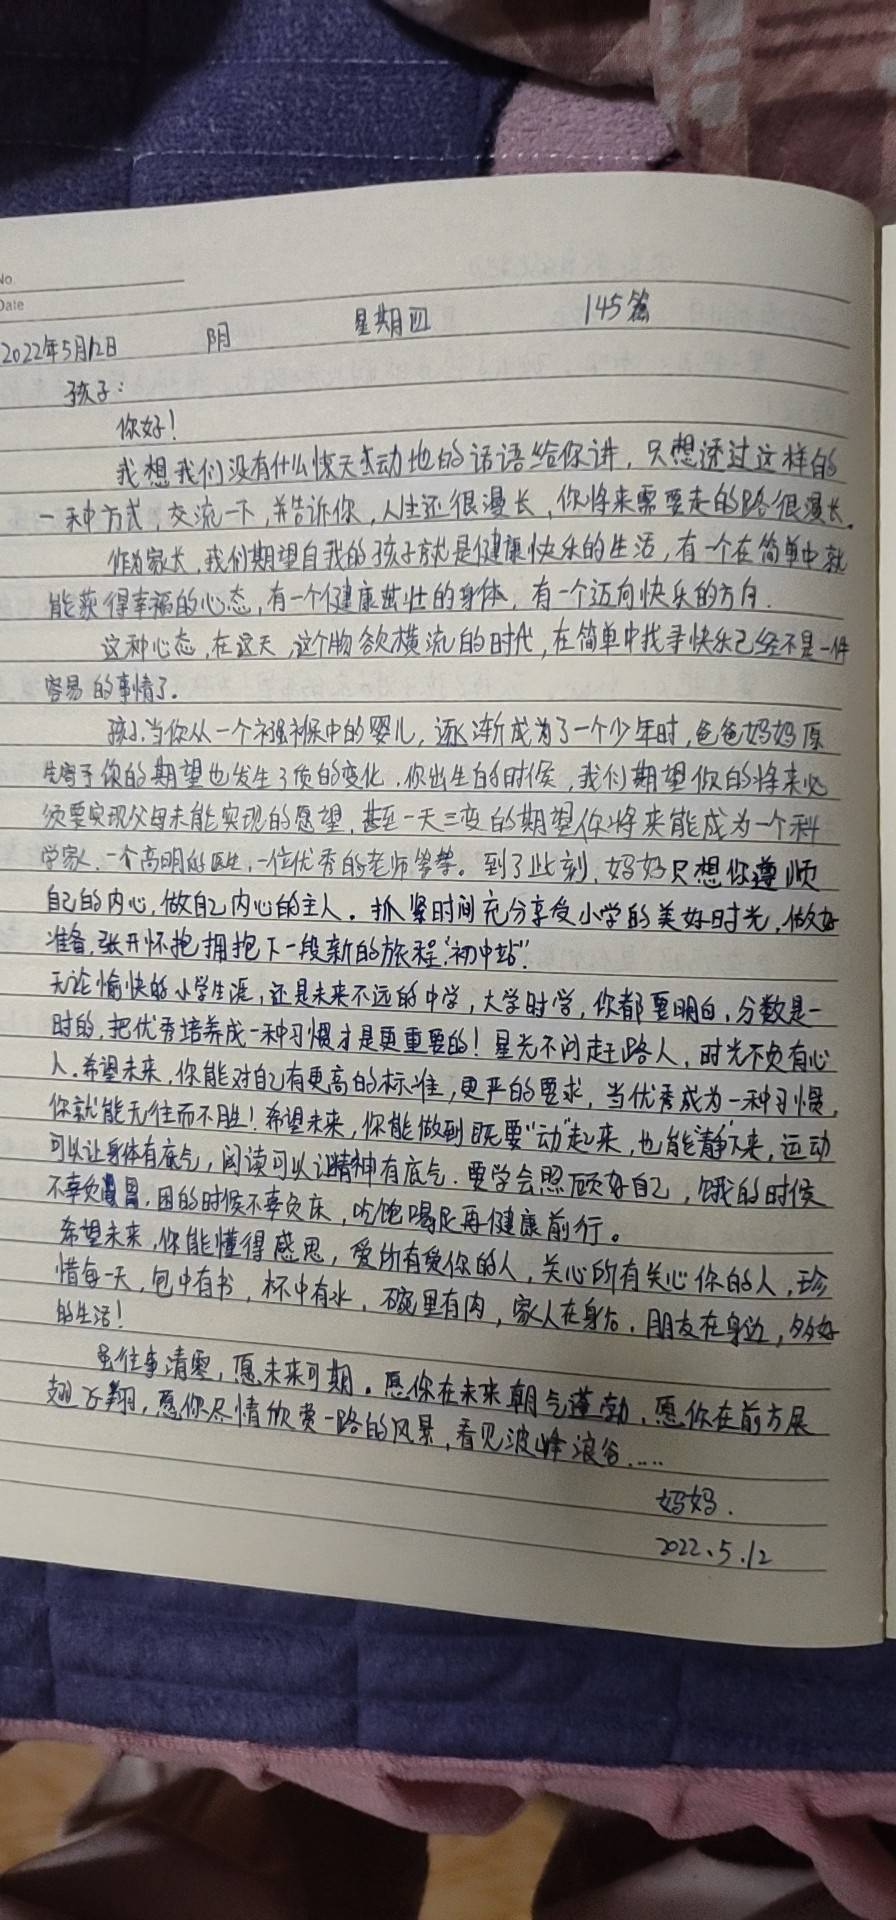 No
Date
2022年5月12日 阴 星期四 145篇
孩子：
你好！
我想我们没有什么惊天动地的话语给你讲，只想透过这样的
一种方式，交流一下，并告诉你，人生还很漫长，你将来需要走的路很漫长。
作为家长，我们期望自我的孩子就是健康快乐的生活，有一个在简单中就
能获得幸福的心态，有一个健康茁壮的身体，有一个迈向快乐的方向．
这种心态，在这天，这个物欲横流的时代，在简单中找寻快乐已经不是一件
容易的事情了．
孩子，当你从一个襁褓中的婴儿，逐渐成为了一个少年时，爸爸妈妈原
先寄予你的期望也发生了质的变化．你出生的时候，我们期望你的将来必
须要实现父母未能实现的愿望，甚至一天三变的期望你将来能成为一个科
学家、一个高明的医生，一位优秀的老师等等。到了此刻，妈妈只想你遵顺
自己的内心，做自己内心的主人。抓紧时间充分享受小学的美好时光，做好
准备，张开怀抱拥抱下一段新的旅程“初中站”．
无论愉快的小学生涯，还是未来不远的中学，大学时学，你都要明白，分数是一
时的，把优秀培养成一种习惯才是更重要的！星光不问赶路人，时光不负有心
人．希望未来，你能对自己有更高的标准，更严的要求，当优秀成为一种习惯，
你就能无往而不胜！希望未来，你能做到既要“动”起来，也能“静”下来，运动
可以让身体有底气，阅读可以让精神有底气．要学会照顾好自己，饿的时候
不辜负胃，困的时候不辜负床，吃饱喝足再健康前行。
希望未来，你能懂得感恩，爱所有爱你的人，关心所有关心你的人，珍
惜每一天，包中有书，杯中有水，碗里有肉，家人在身后，朋友在身边，多好
的生活！
虽往事清零，愿未来可期。愿你在未来朝气蓬勃，愿你在前方展
翅飞翔，愿你尽情欣赏一路的风景，看见波峰浪谷……
妈妈．
2022、5．12